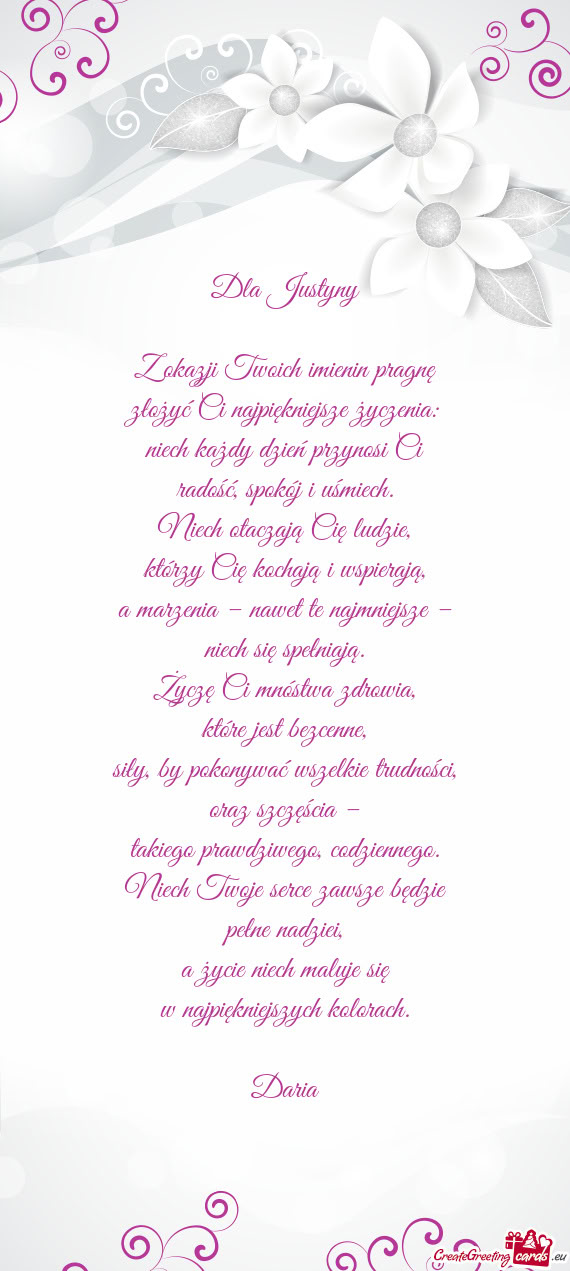 Dla Justyny
Zokazji Twoich imienin pragnę
złożyć Ci najpiękniejsze życzenia:
niech każdy dzień przynosi Ci
radość, spokój i uśmiech.
Niech otaczają Cię ludzie,
którzy Cię kochają i wspierają,
a marzenia – nawet te najmniejsze –
niech się spełniają.
Życzę Ci mnóstwa zdrowia,
które jest bezcenne,
siły, by pokonywać wszelkie trudności,
oraz szczęścia –
takiego prawdziwego, codziennego.
Niech Twoje serce zawsze będzie
pełne nadziei,
a życie niech maluje się
w najpiękniejszych kolorach.
Daria
CreateGreeting cards .eu